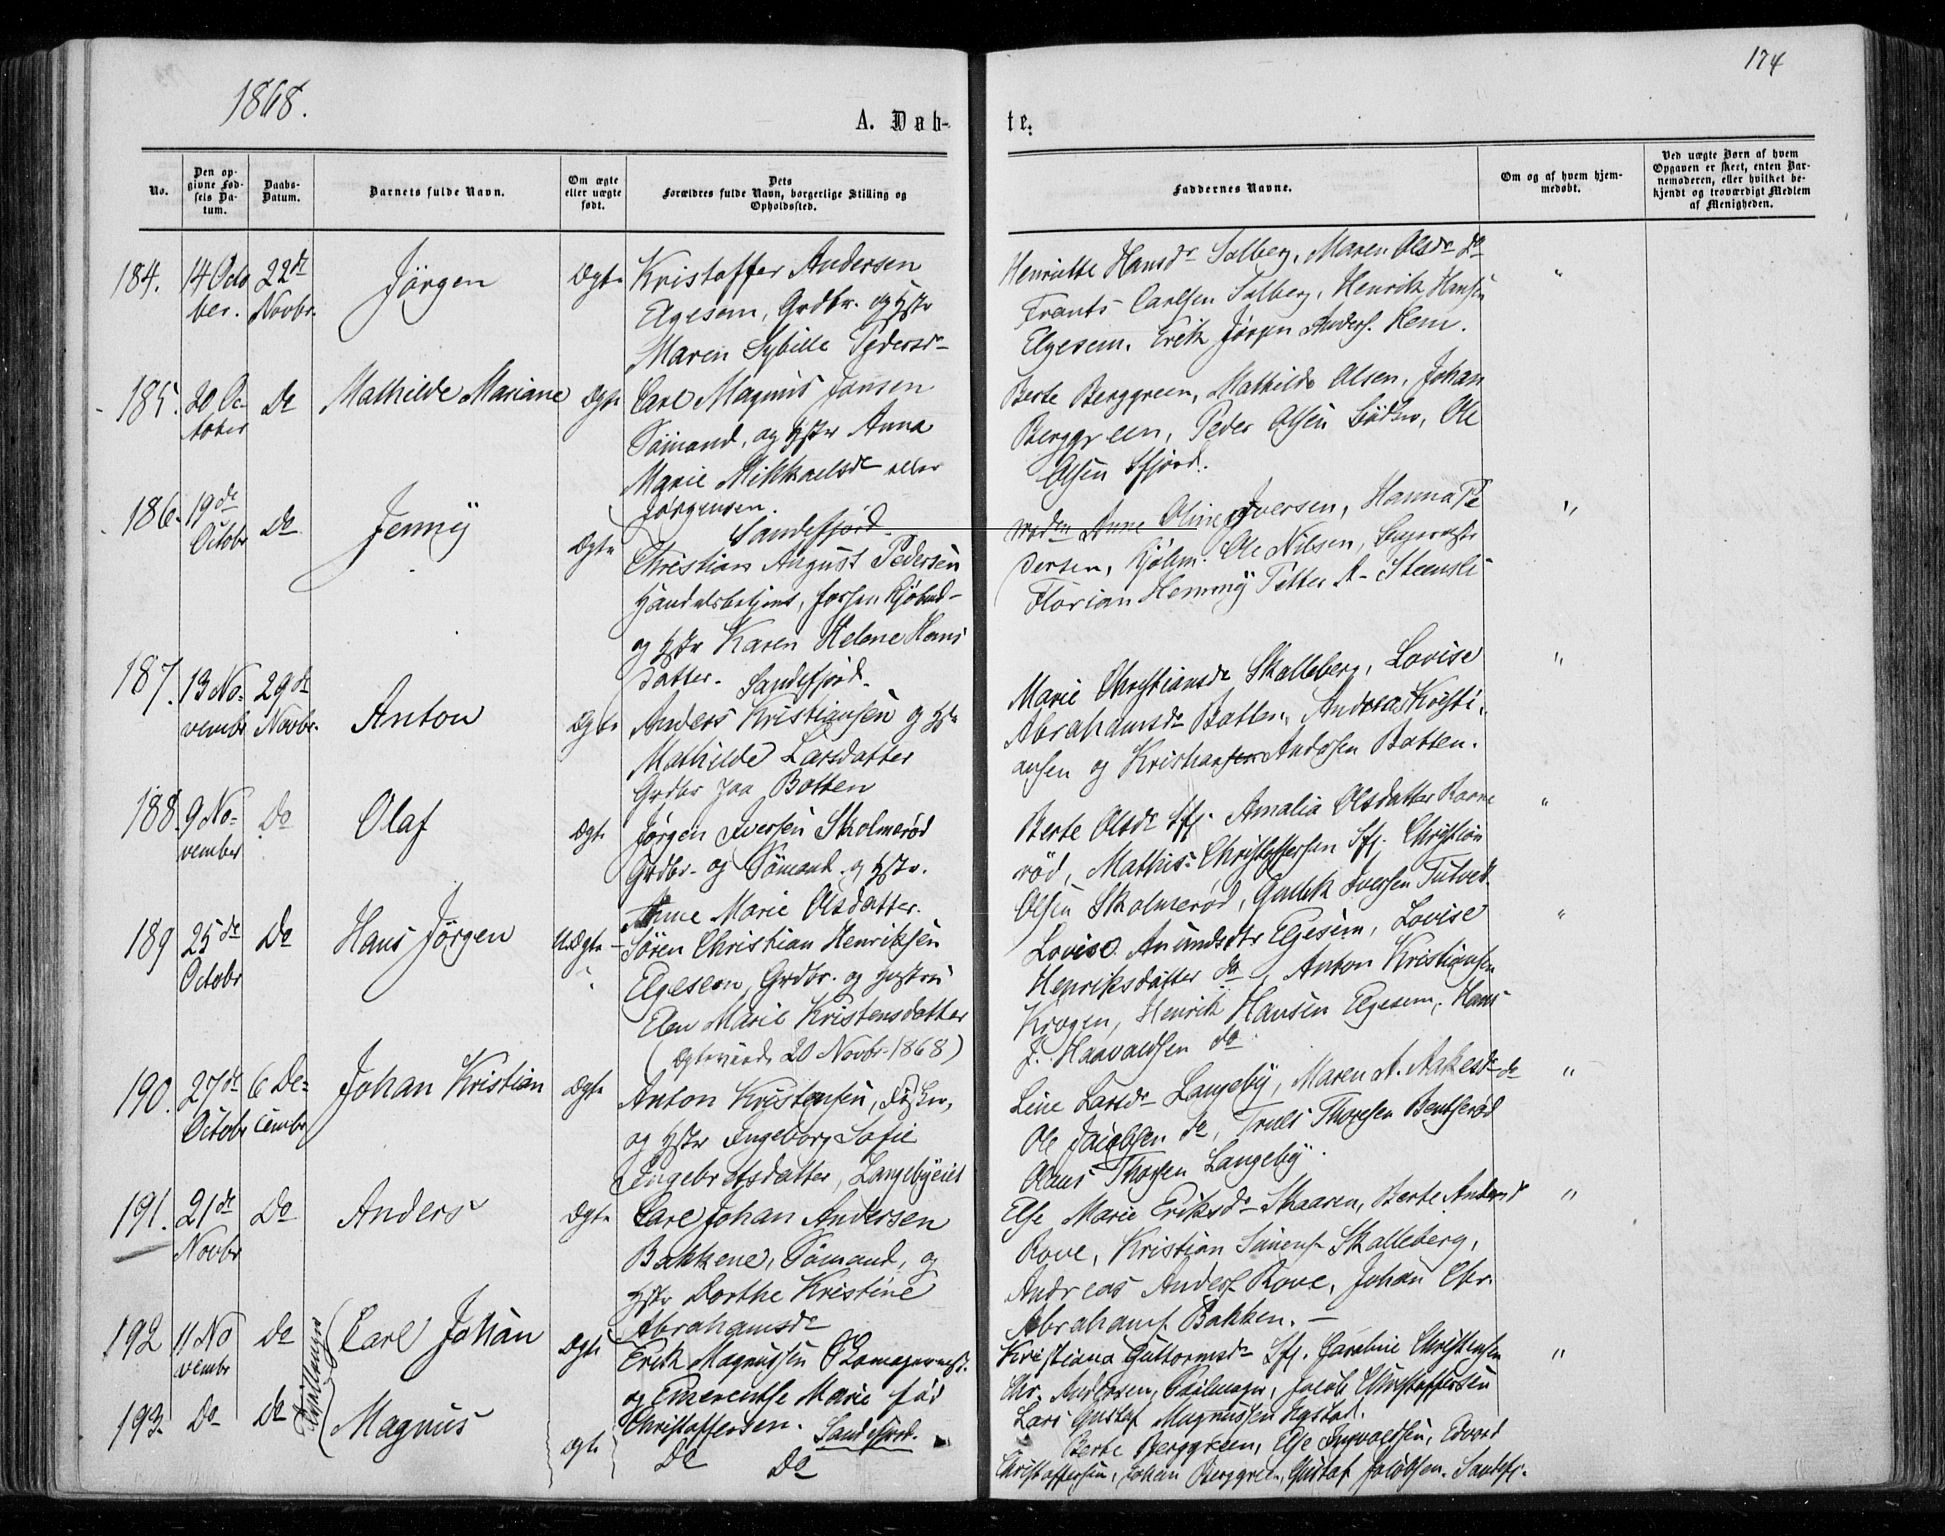 1868.
174
A. Døb-
te.
No.
Den op-
givne Fød-
sels Da-
tum.
Daabs-
Datum.
Barnets fulde Navn.
Om ægte
eller uægte
født.
Dets
Forældres fulde Navn, borgerlige Stilling og
Opholdssted.
Faddernes Navne.
Om og af hvem hjem-
medøbt.
Ved uægte Børn af hvem
Opgaven er skeet, enten Bar-
nemoderen, eller hvilket be-
kjendt og troværdigt Medlem
af Menigheden.
184.
14 Octo
ber.
22de
Novbr.
Jörgen
Ægte
Kristoffer Andersen
Elgesem, Grdbr. og Hstr
Maren Sybille Pedersdr
Henriette Hansdr Solberg, Maren Olsdr do
Frants Carlsen Solberg, Henrik Hansen
Elgesem. Erik Jörgen Anders. Hem.
"
185.
20 Oc-
tober
Do
Mathilde Mariane
Ægte
Carl Magnus Jansen
Sömand, og Hstr Anna
Marie Mikkaelsdr eller
Jörgensen.
Sandefjord
Berte Berggreen, Mathilde Olsen, Johan
Berggreen, Peder Olsen Bödker, Ole
Olsen Sfjord.
186.
19de
Octobr
Do
Jenny
Ægte
Christian August Pedersen
Handelsbetjent,
og Hstr Karen Helene Hans
datter. Sandefjord.
Anne Oline Iversen, Hanna Pe
dersen, Kjölm. Ole Nilsen,
Florian Henning Petter A- Steensli
"
187.
13 No-
vembr
29de
Novbr.
Anton
Ægte
Anders Kristiansen og Hstr
Mathilde Larsdatter
Grdbr paa Botten
Marie Christiansdr Skalleberg, Lovise
Abrahamsdr Botten, Andreas Kristi-
ansen og Kristian Andersen Botten.
"
188.
9 No-
vember
Do
Olaf
Ægte
Jörgen Iversen Skolmeröd
Grdbr. og Sömand. og Hstr.
Anne Marie Olsdatter.
Berte Olsdr Sfj. Amalia Olsdatter Ravne
röd, Mathis Christoffersen Sfj. Christian
Olsen Skolmeröd, Gullik Iversen Tutvet.
"
189
25de
Octobr
Do
Hans Jörgen
Uægte
Sören Christian Henriksen
Elgesem, Grdbr. og Hustru
Elen Marie Kristensdatter
(Ægteviede 20 Novbr. 1868)
Lovise Anundsdtr Elgesem, Lovise
Henriksdatter do, Anton Kristiansen
Krogen, Henrik Hansen Elgesem, Hans
J. Haavaldsen do
"
190.
27de
Octobr
6 De-
cembr
Johan Kristian
Ægte
Anton Kristensen,
og Hstr Ingeborg Sofie
Ingebretsdatter, Langebyeiet
Line Larsdr Langeby, Maren A. Aakesdr do
Ole Jacobsen do, Truls Thoresen Bentseröd
Olaus Thoresen Langeby.
"
191.
21de
Novbr
Do
Anders
Ægte
Carl Johan Andersen
Bakkene, Sömand, og
Hstr Dorthe Kristine
Abrahamsdr
Else Marie Eriksdr Skaaren, Berte Andersdr
Rove, Kristian Simens. Skalleberg,
Andreas Anders. Rove, Johan Chr.
Abrahams. Bakken.
"
192
11 No
vembr
Do
Tvillinger
Carl Johan
Ægte
Erik Magnussen
og Emerentse Marie föd
Christoffersen. Sandefjord.
Kristiana Guttormsdr Sfj. Caroline Christensen
Chr. Andersen, Seilmager, Jacob Christoffersen
Lars Gustaf Magnussen
"
193.
Do
Do
Magnus
Ægte
Do Do
Berte Berggreen, Else Ingvaldsen, Edvard
Christoffersen, Johan Berggreen, Gustaf Jacobsen. Sandefj.